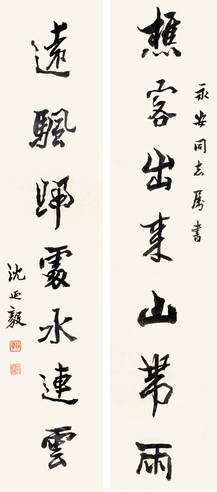 永安同志属書
樵客出来山帶雨
遠颿歸處水連雲
沈延毅